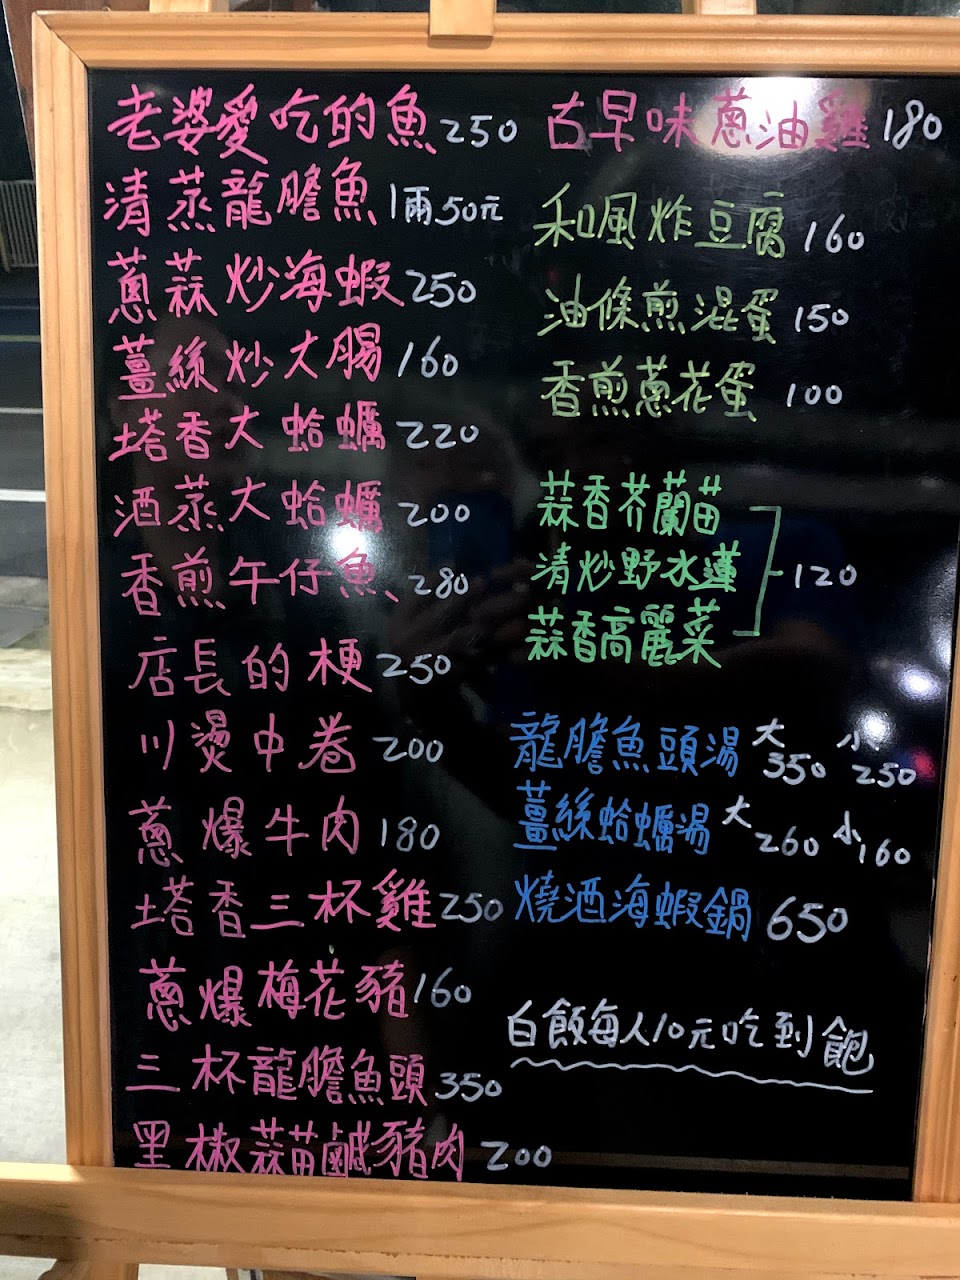 老婆愛吃的魚250
清蒸龍膽魚1兩50元
蔥蒜炒海蝦250
薑絲炒大腸160
塔香大蛤蠣220
酒蒸大蛤蠣200
香煎午仔魚280
店長的梗250
川燙中卷200
蔥爆牛肉180
塔香三杯雞250
蔥爆梅花豬160
三杯龍膽魚頭350
黑椒蒜苗鹹豬肉200
古早味蔥油雞180
和風炸豆腐160
油條煎混蛋150
香煎蔥花蛋100
蒜香芥蘭苗
清炒野水蓮
120
蒜香高麗菜
龍膽魚頭湯大350小250
薑絲蛤蠣湯大260小160
燒酒海蝦鍋650
白飯每人10元吃到飽